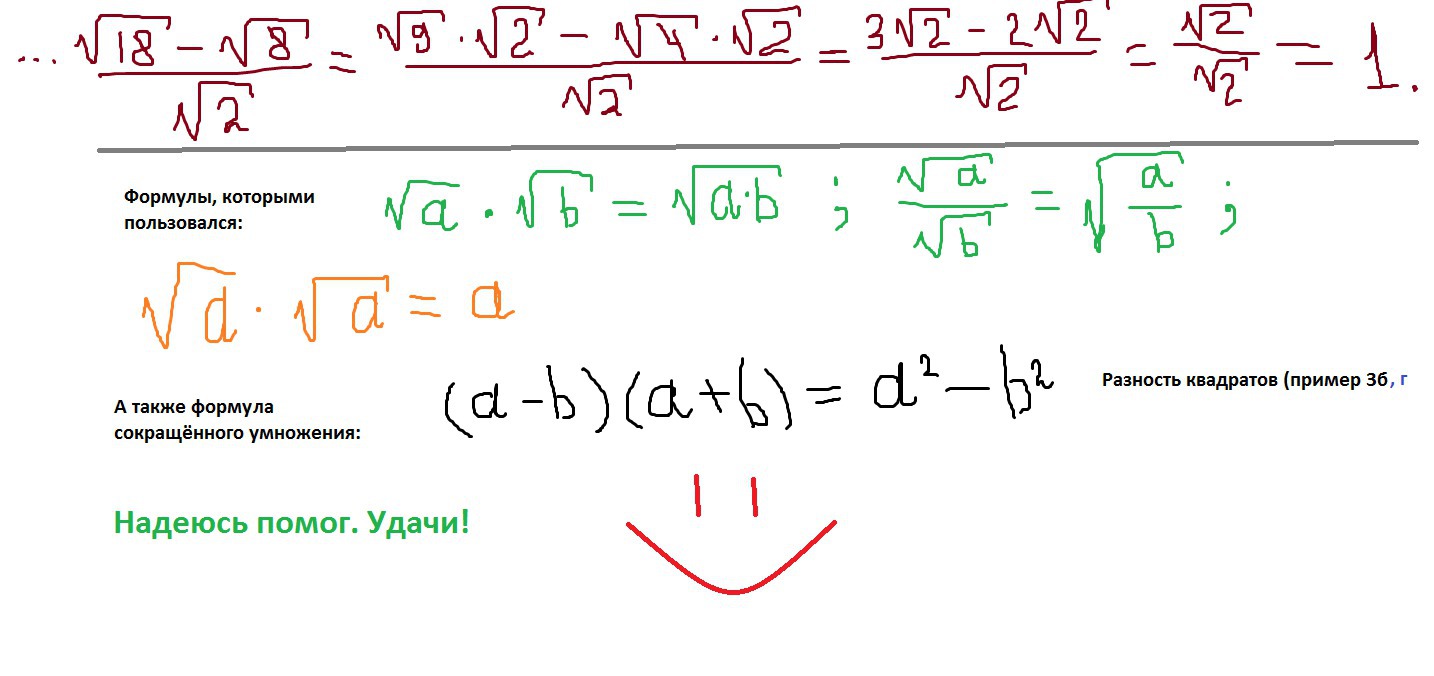 ... √18 − √8 / √2 = √9 · √2 − √4 · √2 / √2 = 3√2 − 2√2 / √2 = √2 / √2 = 1.
Формулы, которыми
пользовался:
√a · √b = √a·b ; √a / √b = √a / b ;
√a · √a = a
А также формула
сокращённого умножения:
(a − b)(a + b) = a² − b²
Разность квадратов (пример 3б, г
Надеюсь помог. Удачи!